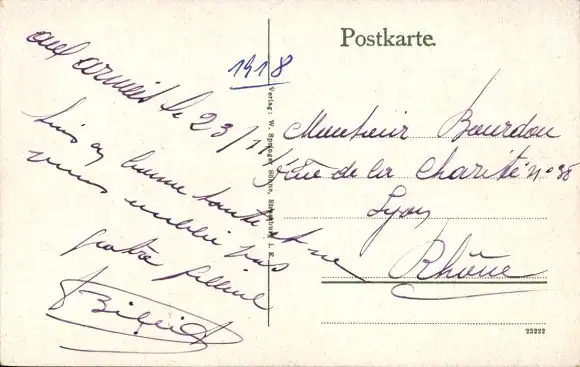 Postkarte.
1918
aux armées le 23/11
suis en bonne santé et ne
vous oublie pas
votre filleul
Monsieur Bourdon
Rue de la Charité N° 38
Lyon
Rhône
Verlag: W. Springer Söhne, Strassburg i. E.
25222